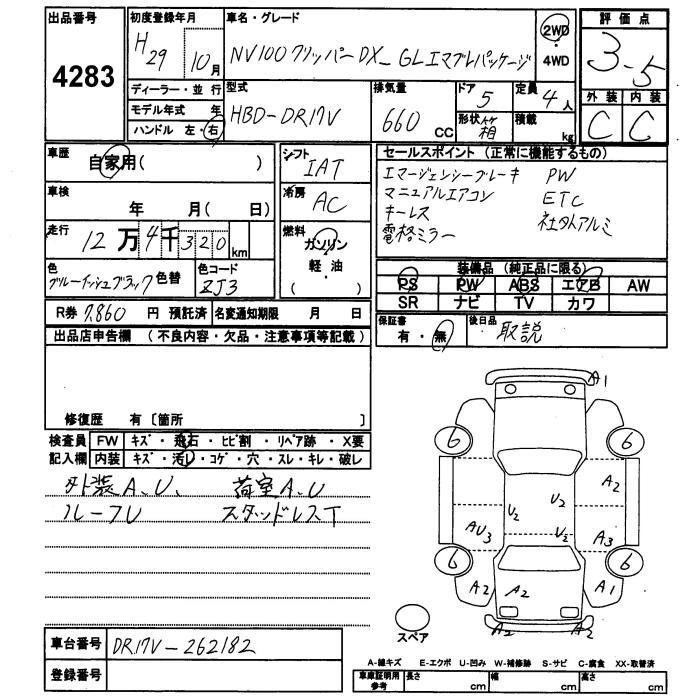 出品番号
4283
初度登録年月
H29 10月
車名・グレード
NV100クリッパーDX_GLエマブレパッケージ
2WD・4WD
評価点
3.5
外装 内装
C C
ディーラー・並行
モデル年式 年
ハンドル 左・右
型式
HBD-DR17V
排気量
660 CC
ドア
5
形状
定員
4人
積載
kg
車歴
自家用( )
車検
年 月( 日)
走行
12万4千320km
色
ブルーイッシュブラック 色替
色コード
ZJ3
シフト
IAT
冷房
AC
燃料
ガソリン
軽油・
( )
セールスポイント (正常に機能するもの)
エマージェンシーブレーキ PW
マニュアルエアコン ETC
キーレス 社外アルミ
電格ミラー
装備品 (純正品に限る)
PS PW ABS エアB AW
SR ナビ TV カワ
R券 7,860 円 預託済 名変通知期限 月 日
保証書
有・無
後日品
取説
出品店申告欄 (不良内容・欠品・注意事項等記載)
修復歴 有〔箇所 〕
検査員 FW キズ・飛石・ヒビ割・リペア跡・X要
記入欄 内装 キズ・汚レ・コゲ・穴・スレ・キレ・破レ
外装A、U、 荷室A、U
ルーフU スタッドレスT
A1
6 6
A2
U2 U2
AU3 U2 A3
6 6
A2 A2 A1
A2 A2
スペア
車台番号 DR17V-262182
登録番号
A-線キズ E-エクボ U-凹み W-補修跡 S-サビ C-腐食 XX-取替済
車庫証明用参考 長さ cm 幅 cm 高さ cm